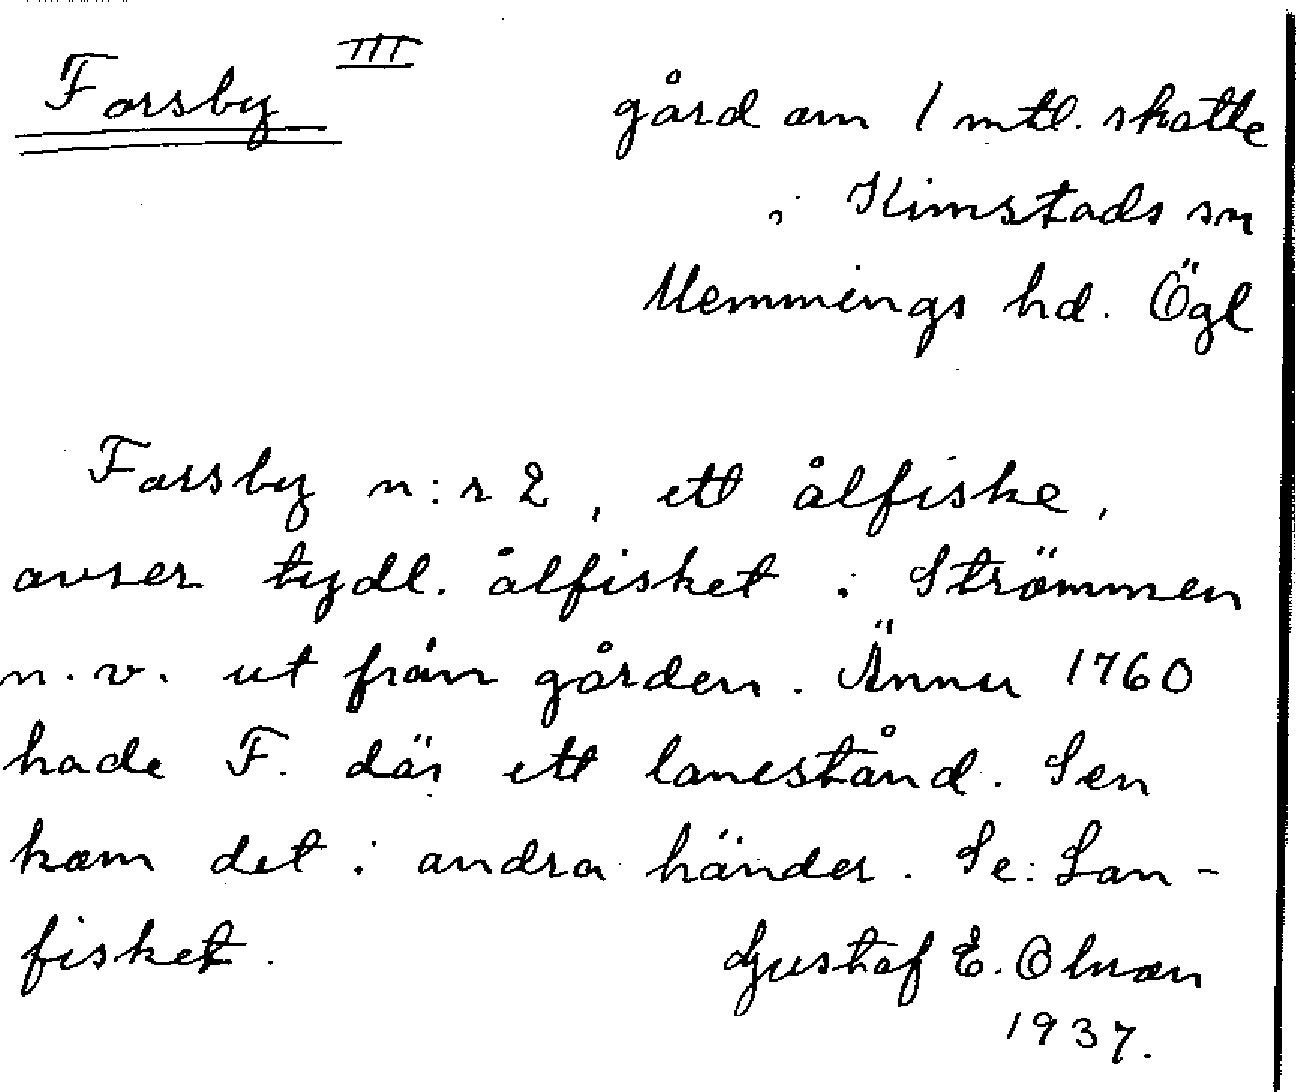 Forsby III
gård om 1 mtl. skatte
i Kimstads sn
Memmings hd. Ögl
Forsby n:r 2, ett ålfiske,
avser tydl. ålfisket i Strömmen
n.v. ut från gården. Ännu 1760
hade F. där ett lanestånd. Sen
kom det i andra händer. Se: Lan-
fisket. Gustaf E. Olson
1937.